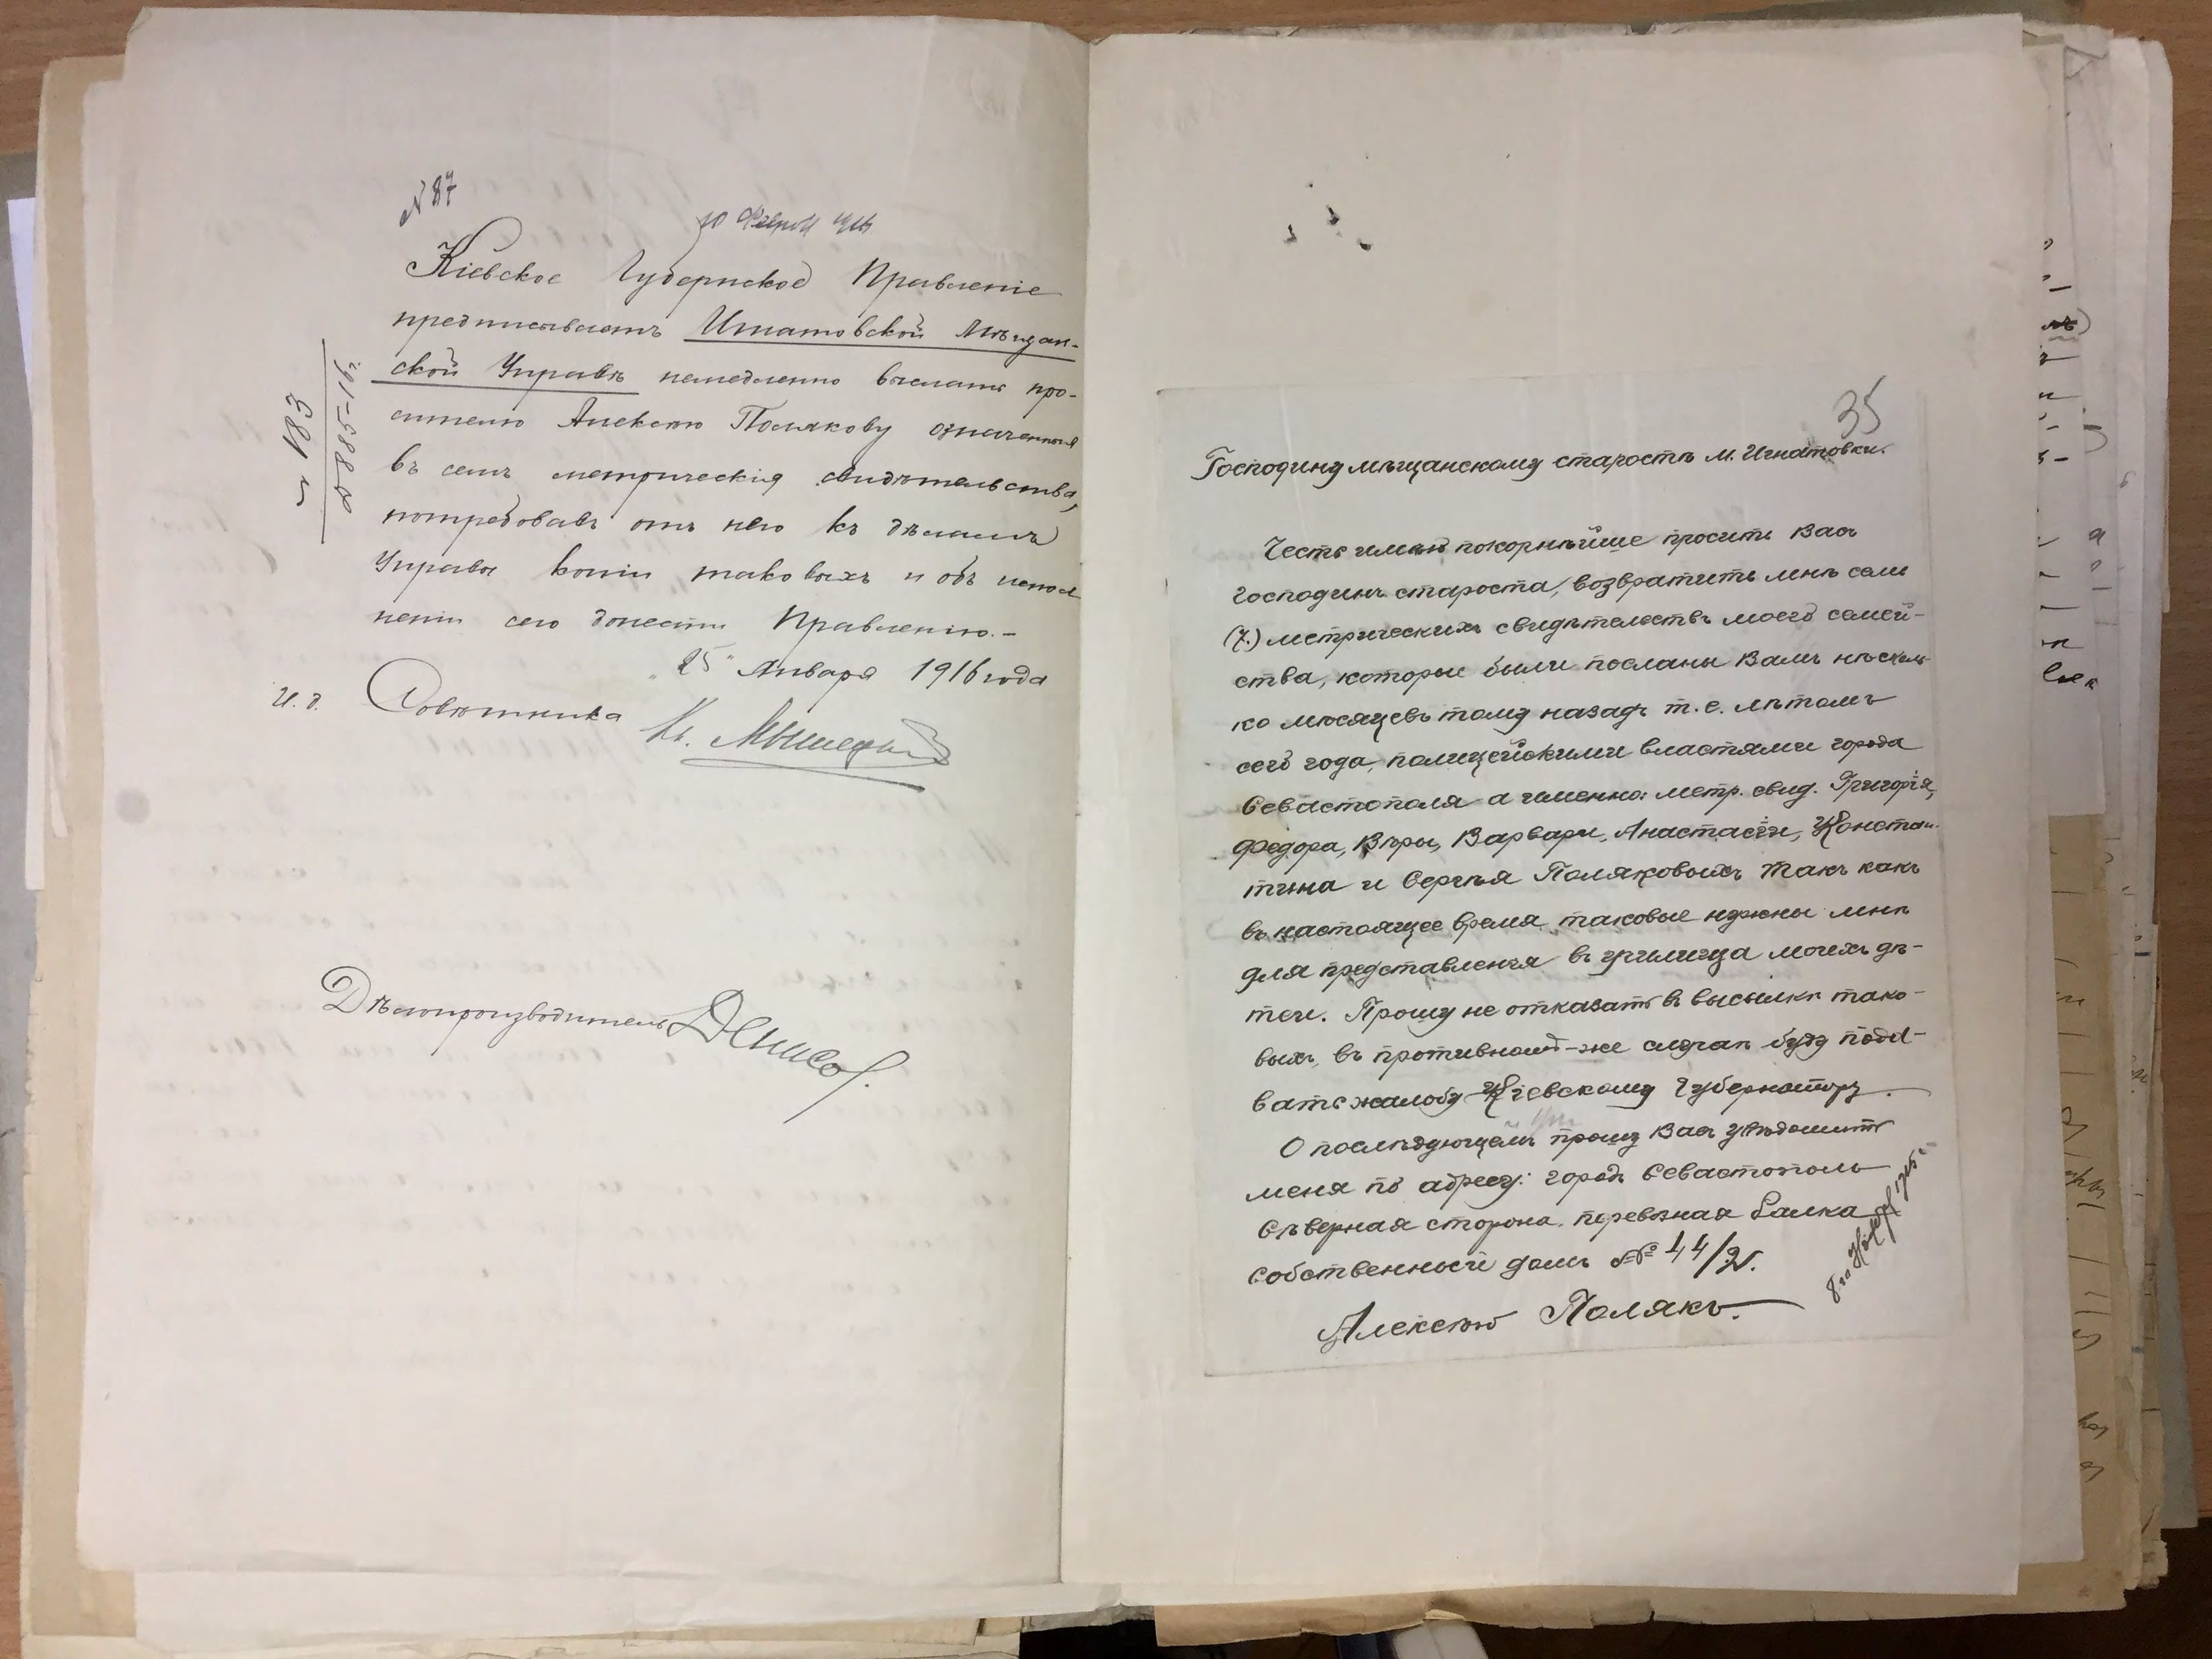 № 87
10 Феврал 1916
Кіевское Губернское Правленіе
предписываетъ Игнатовской Мѣщан-
ской Управѣ немедленно выслать про-
сителю Алексѣю Полякову означенныя
въ семъ метрическія свидѣтельства,
потребовавъ отъ него къ дѣламъ
Управы копіи таковыхъ и объ испол
неніи сего донести Правленію.-
"25" Января 1916 года
И. д. Совѣтника
Дѣлопроизводитель
35
Господину мѣщанскому старостѣ м. Игнатовки.
Честь имѣю покорнѣйше просить Васъ
господинъ староста, возвратить мнѣ семь
(7.) метрическихъ свидѣтельствъ моего семей-
ства, которые были посланы Вамъ нѣсколь-
ко мѣсяцевъ тому назадъ т. е. лѣтомъ
сего года, полицейскими властями города
Севастополя а именно: метр. свид. Григорія,
Федора, Вѣры, Варвары, Анастасіи, Констан-
тина и Сергѣя Поляковыхъ такъ какъ
въ настоящее время таковые нужны мнѣ
для представленія въ училища моихъ дѣ-
тей. Прошу не отказать въ высылкѣ тако-
выхъ, въ противномъ-же случаѣ буду пода-
вать жалобу Кіевскому Губернатору.
О послѣдующемъ прошу Васъ увѣдомить
меня по адресу: городъ Севастополь
Сѣверная сторона. перевозная балка
собственный домъ № 44/2.
Алексѣй Полякъ.